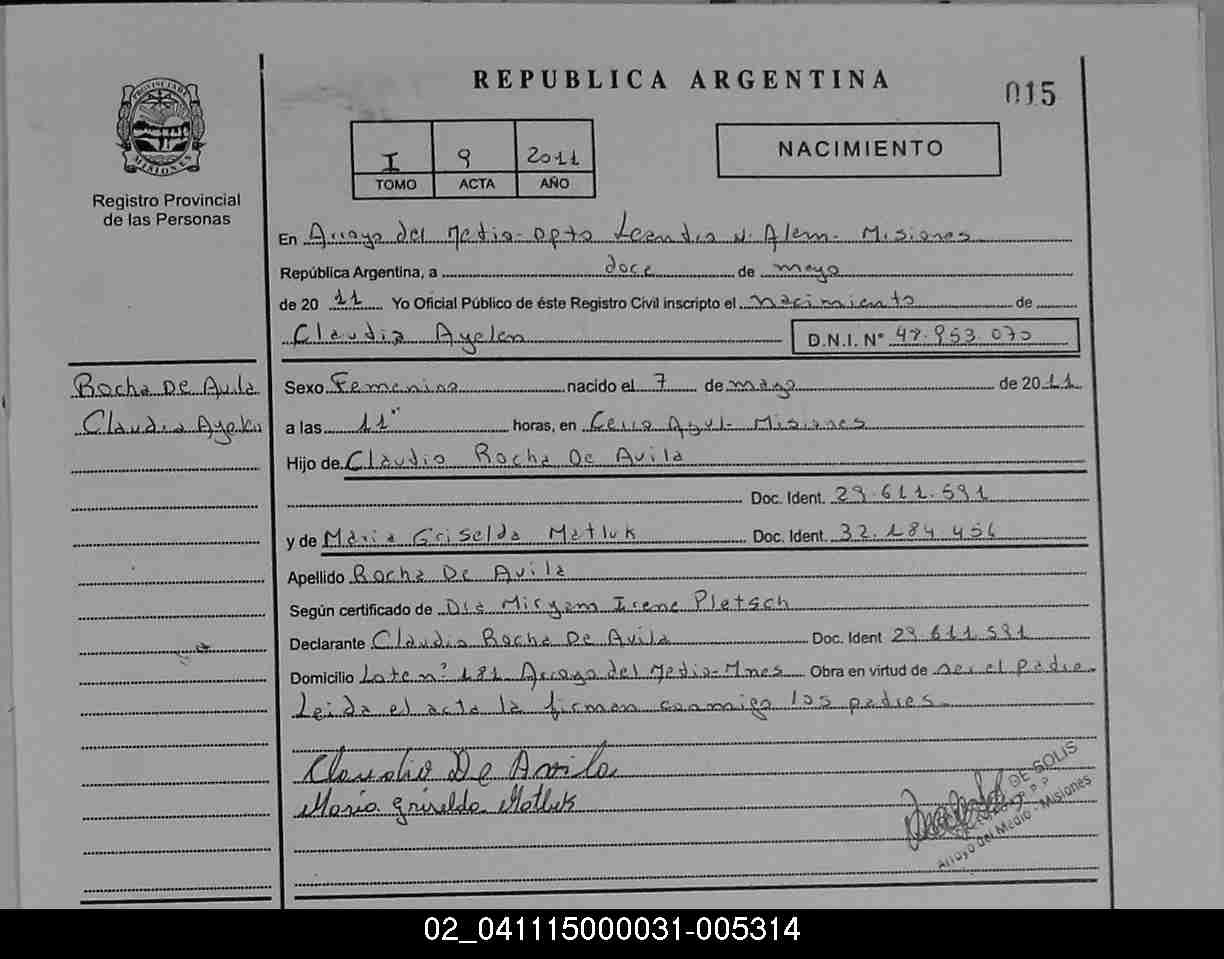 REPUBLICA ARGENTINA
015
PROVINCIA DE MISIONES
Registro Provincial
de las Personas
I 9 2011
TOMO ACTA AÑO
NACIMIENTO
En Arroyo del Medio- Dpto Leandro N. Alem- Misiones
República Argentina, a doce de mayo
de 20 11 Yo Oficial Público de éste Registro Civil inscripto el nacimiento de
Claudia Ayelen D.N.I. N°
Rocha De Avila
Claudia Ayelen
Sexo Femenino nacido el 7 de mayo de 2011
a las 11" horas, en Cerro Azul- Misiones
Hijo de Claudio Rocha De Avila
Doc. Ident. 29.611.591
y de Maria Griselda Matluk Doc. Ident. 32.184.456
Apellido Rocha De Avila
Según certificado de Dra Miryam Irene Pletsch
Declarante Claudio Rocha De Avila Doc. Ident 29.611.591
Domicilio Lote n° 181 Arroyo del Medio-Mnes Obra en virtud de ser el padre.
Leida el acta la firman conmigo los padres.
Claudio De Avila
Maria Griselda Matluk
DE SOLIS
Arroyo del Medio - Misiones
02_041115000031-005314